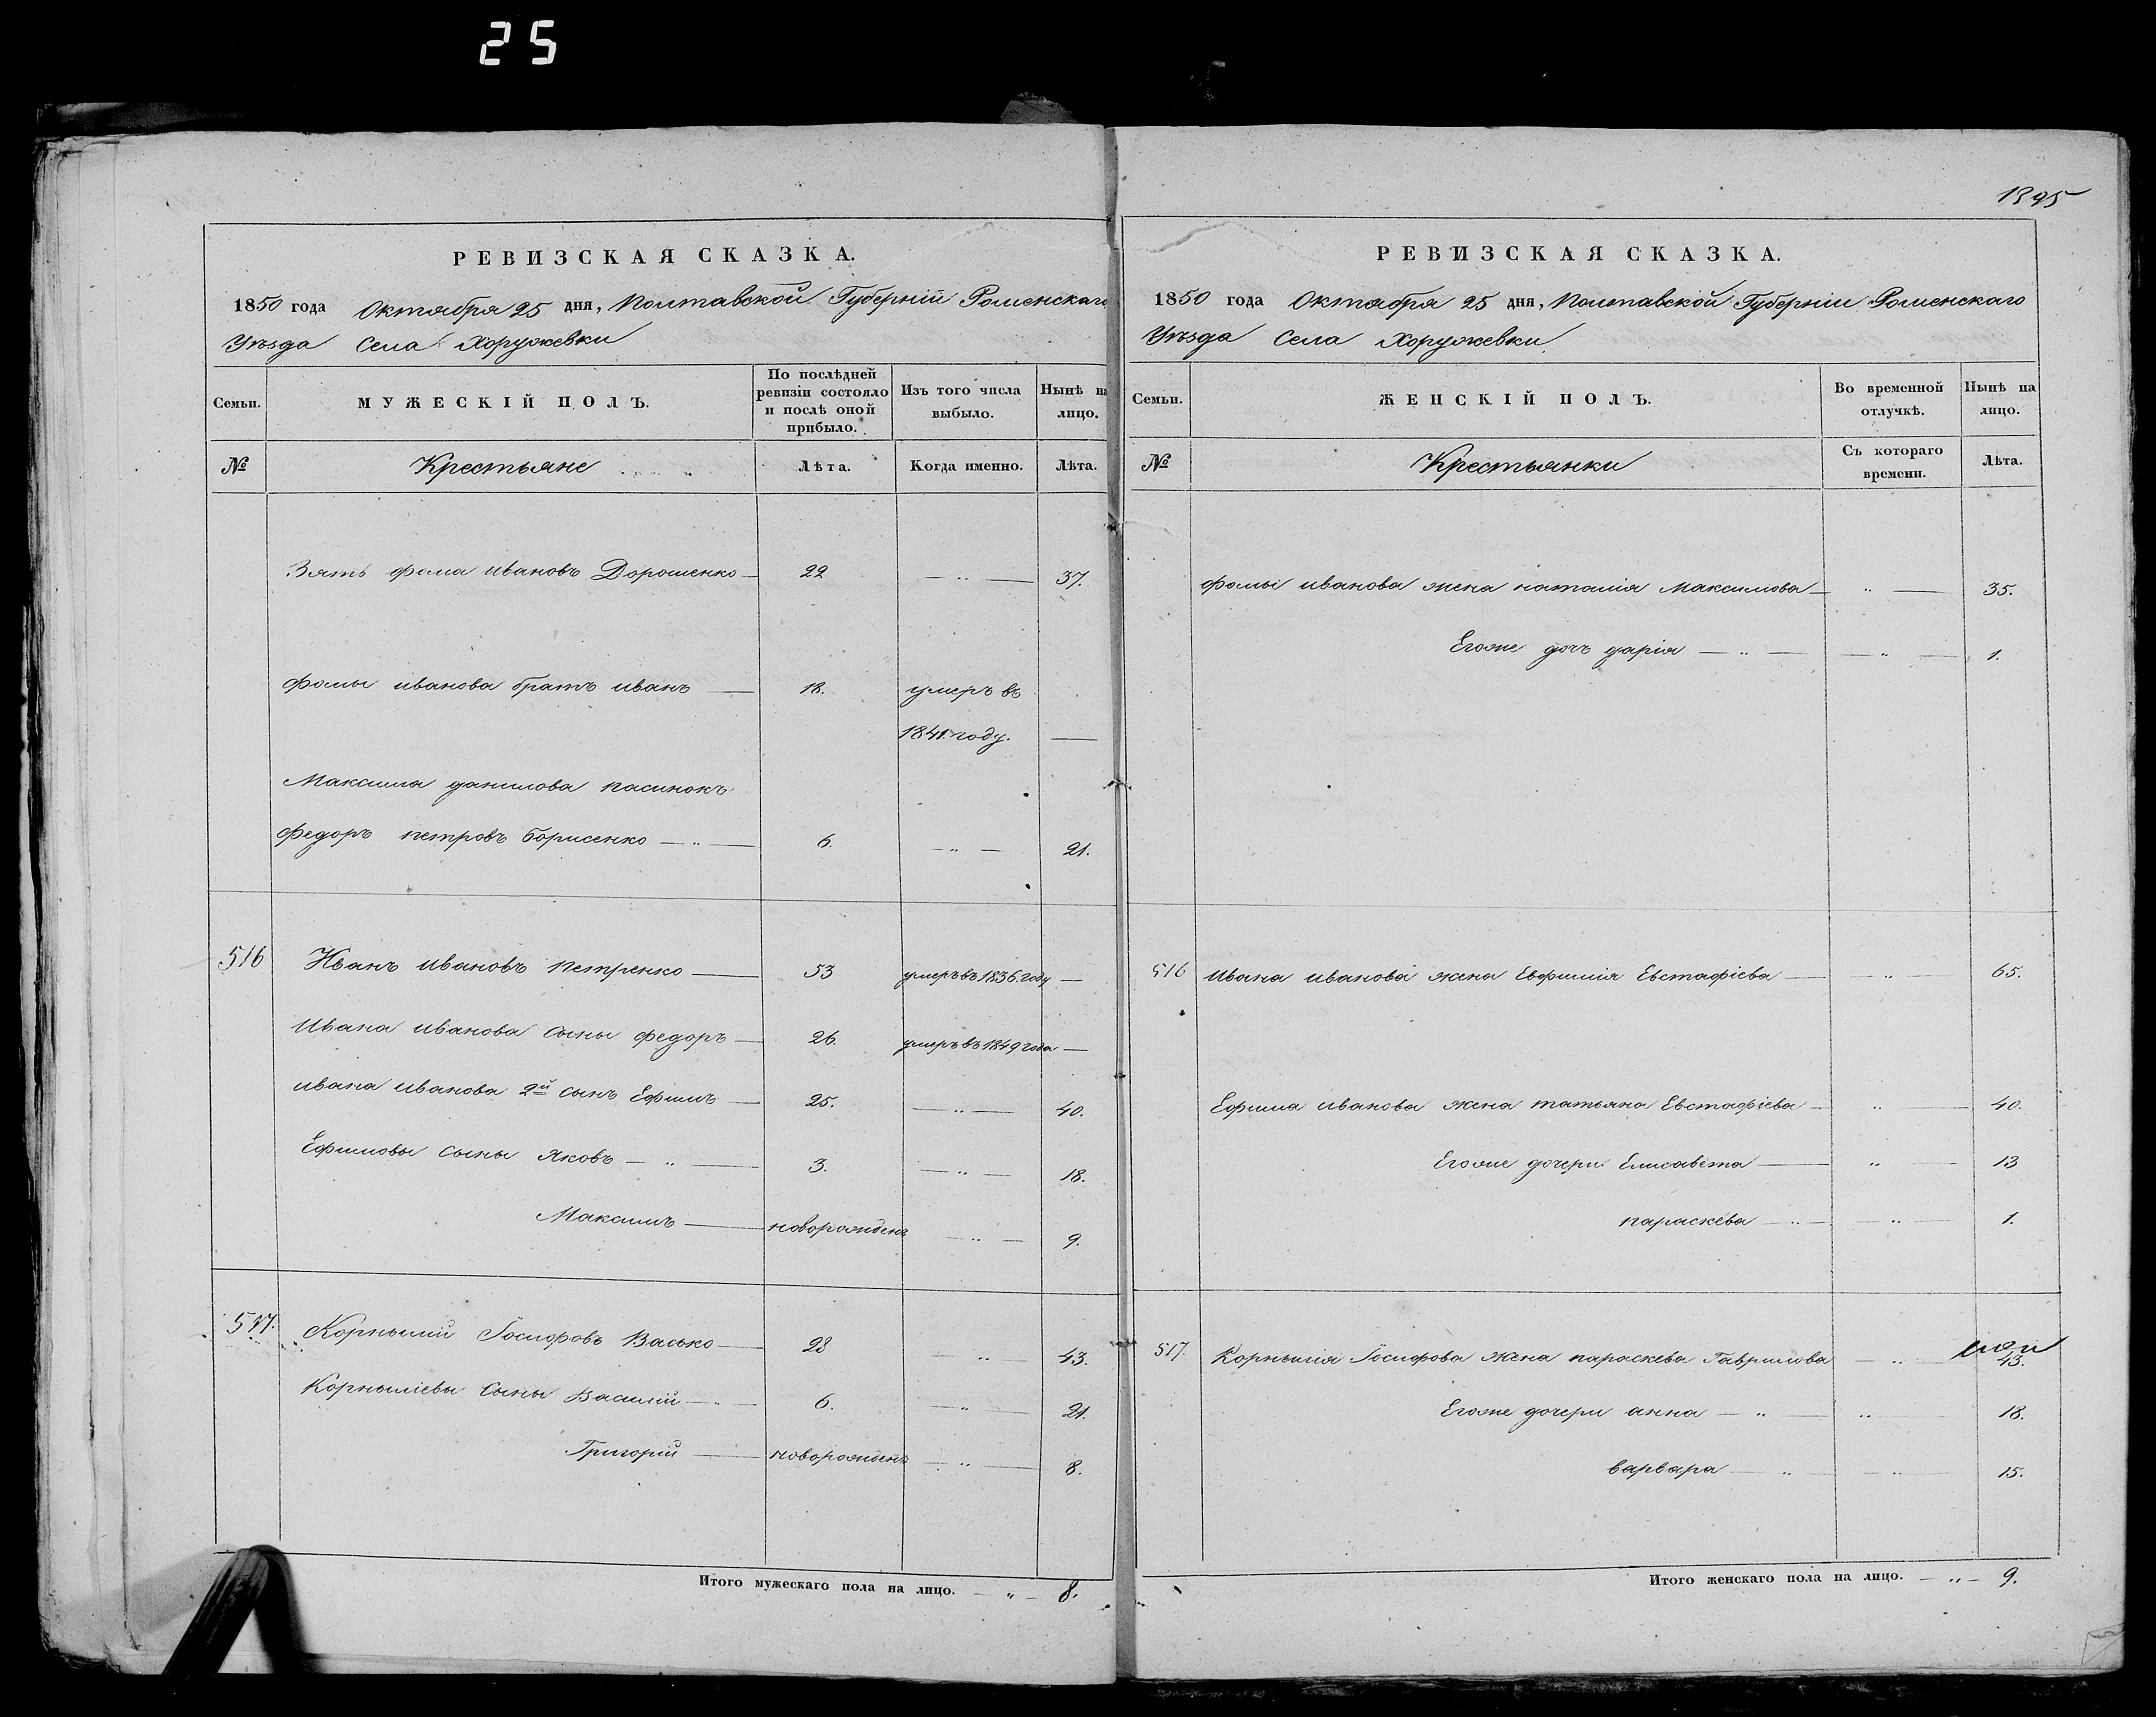 25
1395
РЕВИЗСКАЯ СКАЗКА.
1850 года Октября 25 дня, Полтавской Губерніи Роменскаго
Уѣзда Села Хоружевки
Семьи.
МУЖЕСКІЙ ПОЛЪ.
По послѣдней ревизіи состояло и послѣ оной прибыло.
Изъ того числа выбыло.
Нынѣ на лицо.
№ Крестьяне Лѣта. Когда именно. Лѣта.
Зять фома ивановъ Дорошенко — 22 — „ — 37.
фомы иванова братъ иванъ — 18. умеръ въ
1841 году. —
Максима данилова пасинокъ
Федоръ петровъ борисенко — „ — 6. — „ — 21.
516 Иванъ ивановъ петренко — 53 умеръ въ 1836 году —
Ивана иванова сыны федоръ — 26. умеръ въ 1849 года —
ивана иванова 2й сынъ Ефимъ — 25. — „ — 40.
Ефимовы сыны яковъ — „ — 3. — „ — 18.
Максимъ — новорожденъ — „ — 9.
517. Корнылий Іосифовъ Васько — 28 — „ 43.
Корныліевы сыны Василій — „ — 6. — „ — 21.
Григорій — новорожденъ — „ — 8.
Итого мужескаго пола на лицо. — „ — 8.
РЕВИЗСКАЯ СКАЗКА.
1850 года Октября 25 дня, Полтавской Губерніи Роменскаго
Уѣзда Села Хоружевки
Семьи.
ЖЕНСКІЙ ПОЛЪ.
Во временной отлучкѣ.
Нынѣ на лицо.
№ Крестьянки Съ котораго времени. Лѣта.
фомы иванова жена наталія Максимова — „ — 35.
Егоже дочъ дарія — „ — — „ — 1.
516 Ивана иванова жена Евфимія Евстафіева — „ — 65.
Ефима иванова жена татьяна Евстафіева — „ — 40.
Егоже дочери Елисавета — „ — 13
параскева — „ — — „ — 1.
517. Корнылія Іосифова жена параскева Гаврилова — „ — 43.
Егоже дочери анна — „ — „ — 18.
варвара — „ — „ — 15.
Итого женскаго пола на лицо. — „ — 9.